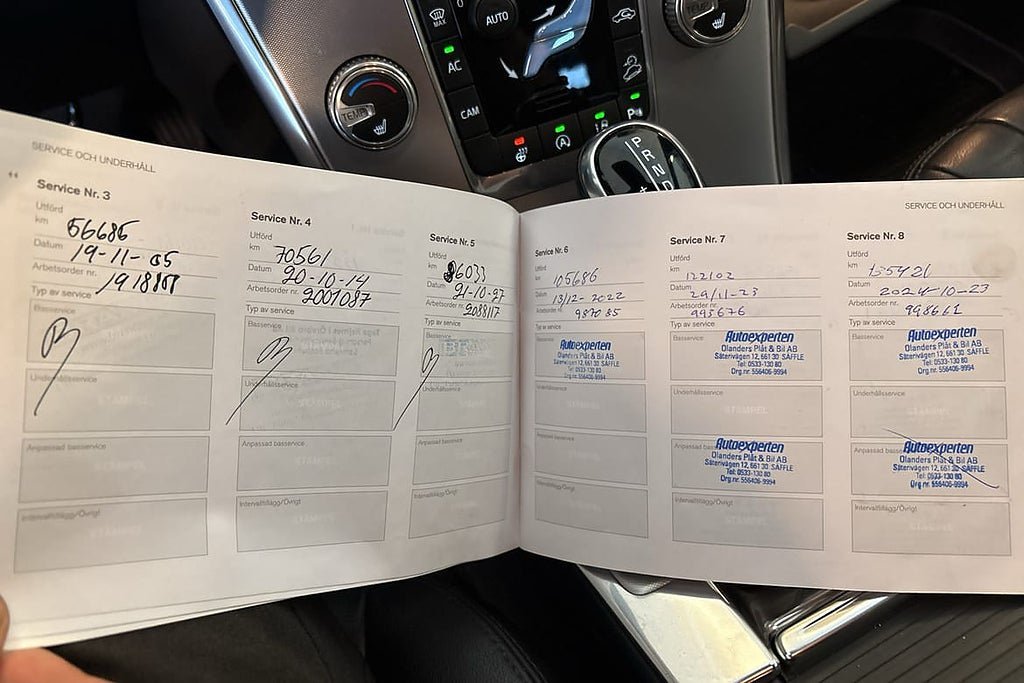 MAX
AUTO
AC
CAM
TEMP
P
R
N
D
SERVICE OCH UNDERHÅLL
Service Nr. 3
Utförd
km 56685
Datum 19-11-05
Arbetsorder nr.
Typ av service
Basservice
Underhållsservice
Anpassad basservice
Intervalltillägg/Övrigt
Service Nr. 4
Utförd
km 70561
Datum 20-10-14
Arbetsorder nr. 2001087
Typ av service
Basservice
Underhållsservice
Anpassad basservice
Intervalltillägg/Övrigt
Service Nr. 5
Utförd
km 86033
Datum 21-10-27
Arbetsorder nr. 2088117
Typ av service
Basservice
Underhållsservice
Anpassad basservice
Intervalltillägg/Övrigt
SERVICE OCH UNDERHÅLL
Service Nr. 6
Utförd
km 105686
Datum 13/12-2022
Arbetsorder nr. 987085
Typ av service
Basservice
Autoexperten
Olanders Plåt & Bil AB
Säterivägen 12, 661 30 SÄFFLE
Tel: 0533-130 80
Org.nr. 556406-9994
Underhållsservice
Anpassad basservice
Intervalltillägg/Övrigt
Service Nr. 7
Utförd
km 122102
Datum 29/11-23
Arbetsorder nr. 993676
Typ av service
Basservice
Autoexperten
Olanders Plåt & Bil AB
Säterivägen 12, 661 30 SÄFFLE
Tel: 0533-130 80
Org.nr. 556406-9994
Underhållsservice
STÄMPEL
Anpassad basservice
Autoexperten
Olanders Plåt & Bil AB
Säterivägen 12, 661 30 SÄFFLE
Tel: 0533-130 80
Org.nr. 556406-9994
Intervalltillägg/Övrigt
STÄMPEL
Service Nr. 8
Utförd
km 135421
Datum 2024-10-23
Arbetsorder nr. 998661
Typ av service
Basservice
Autoexperten
Olanders Plåt & Bil AB
Säterivägen 12, 661 30 SÄFFLE
Tel: 0533-130 80
Org.nr. 556406-9994
Underhållsservice
STÄMPEL
Anpassad
Autoexperten
Olanders Plåt & Bil AB
Säterivägen 12, 661 30 SÄFFLE
Tel: 0533-130 80
Org.nr. 556406-9994
Intervalltillägg/Övrigt
STÄMPEL